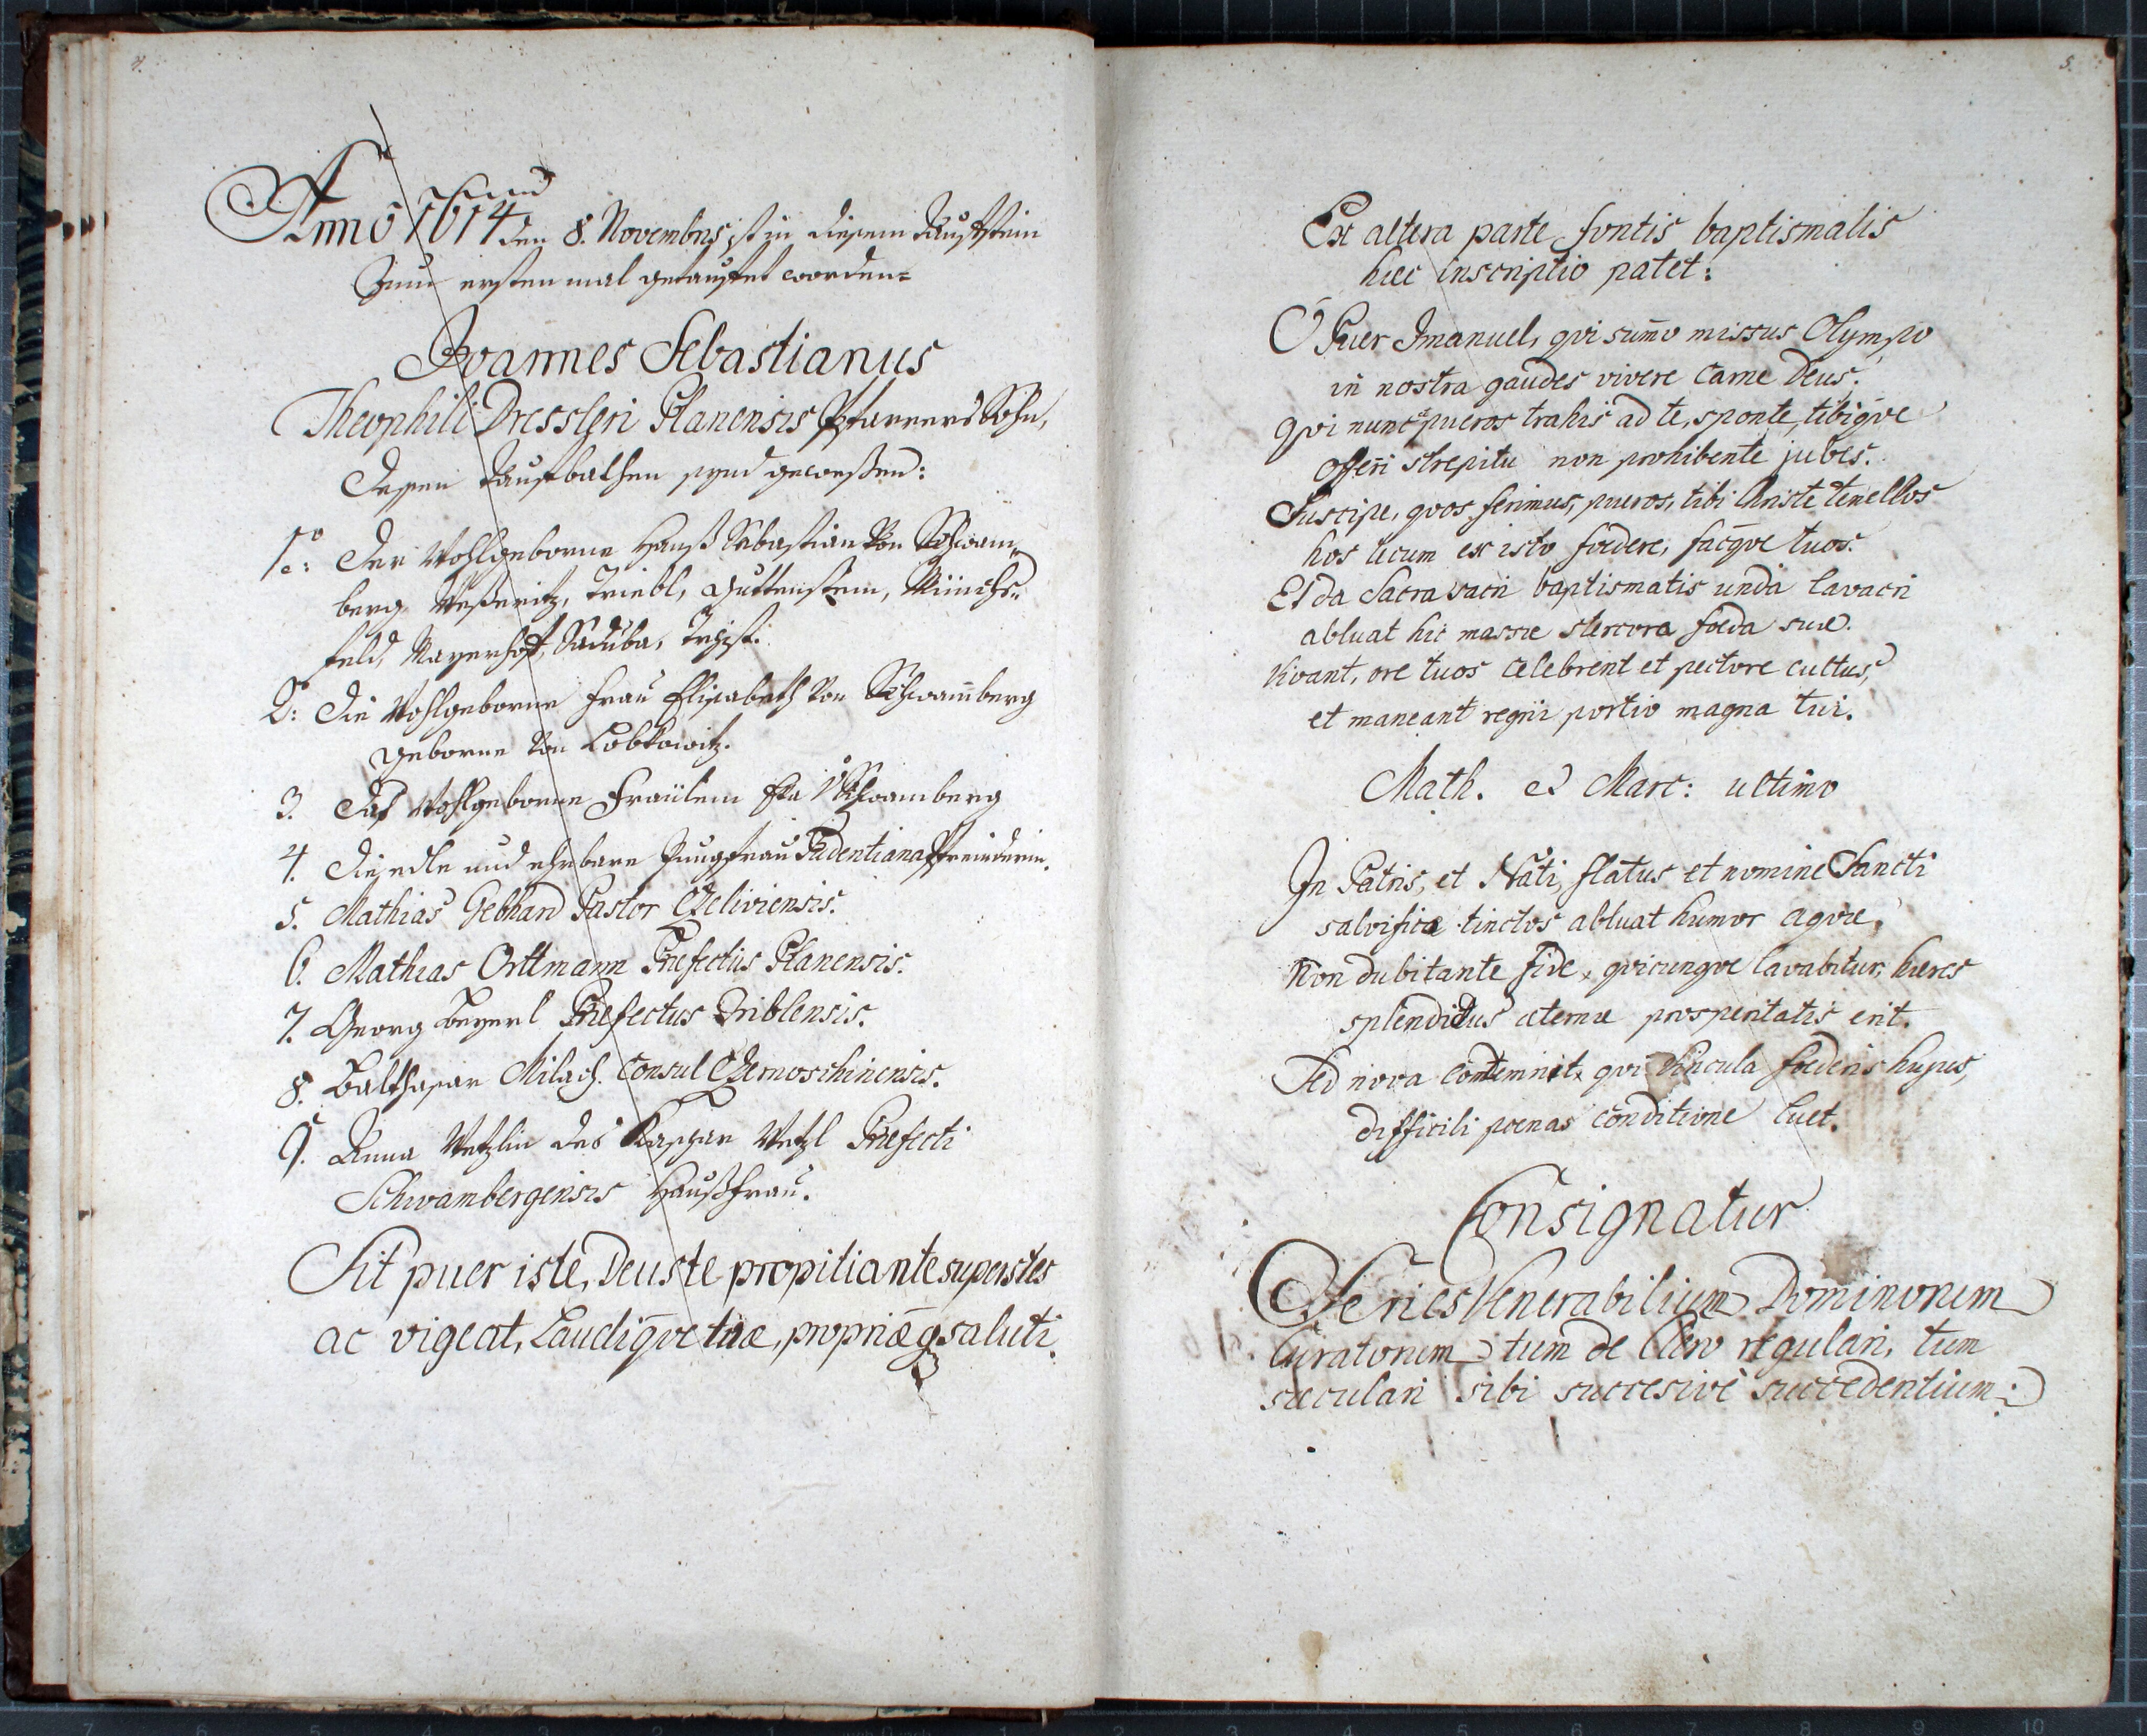 4.
Anno 1614 den 8. Novembris ist in diesem Taufstein
Zum ersten mal getauffet worden=
Joannes Sebastianus
Theophili Dressleri Planensis Pfarrers Sohn,
Dessen Taufbathen synd geweßen:
1mo: Der Wohlgeborne Hanß Sebastian Von Schwam„
berg Weßeritz, Triebl, Guttenstein, Münichs„
feld, Mayerhoff,
2: Die Wohlgeborne Frau Elisabeth Von Schwam̄berg
geborne Von Lobkowitz.
3. Das Wohlgeborne Fraülein Eva V Schwamberg
4. Die edle und ehrbare Jungfrau Pudentiana
5. Mathias Gebhard Pastor Czeliviensis.
6. Mathias Orttmann Præfectus Planensis.
7. Georg Beyerl Præfectus Triblensis.
8. Balthasar Milach. Consul Czernoschinensis.
9. Anna Wetzlin des Kaspar Wetzl Præfecti
Schwambergensis Haußfrau.
Sit puer iste, Deus te propitiante superstes
ac vigeat, Laudiq̄ve tuæ, propriæq saluti.
5.
Ex altera parte fontis baptismalis
hæc inscriptio patet:
O Puer Imanuel, qvi sum̄o missus Olympo
in nostra gaudes vivere Carne Deus.
Qvi nunc pueros trahis ad te, sponte, tibiq̄ve
offeri strepitu non prohibente jubes.
Suscipe, qvos ferimus, pueros, tibi Christe tenellos
hos tecum ex isto fœdere, fac̄qve tuos.
Et da Sacra sacri baptismatis unda lavacri
abluat hic massæ stercora fœda suæ.
Vivant, ore tuos celebrent et pectore cultus,
et maneant regni portio magna tui.
Math. et Marc: ultimo
In Patris, et Nati, flatus et nomine Sancti
salvifica tinctos abluat humor aqvæ,
Non dubitante fide, qvicunqve lavabitur, hæres
splendidus æternæ prosperitatis erit.
Sed nova contemnit, qvi vincula fœderis hujus,
difficili pœnas conditione luet.
Consignatur
Series Venerabilium Dominorum
Curatorum tum de Clero regulari, tum
sæculari sibi succesive succedentium: